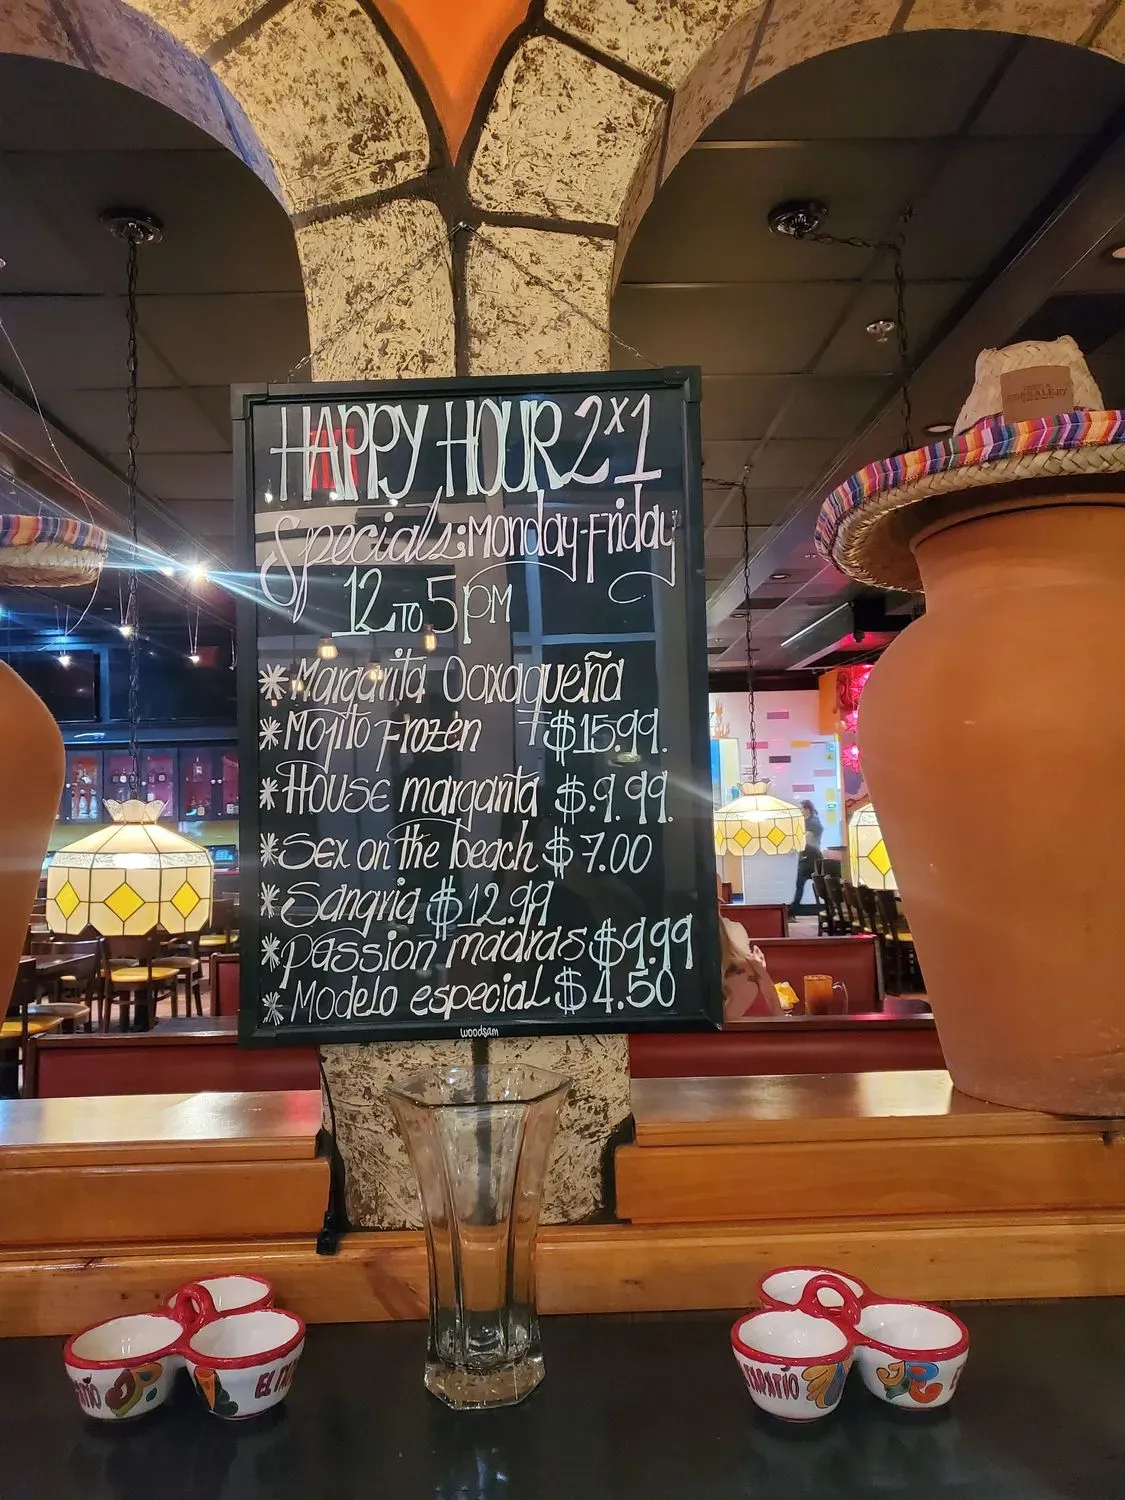 HAPPY HOUR 2x1
Specials: Monday-Friday
12 TO 5 pm
* Margarita Oaxaqueña
* Mojito Frozen $15.99.
* House margarita $.9.99.
* Sex on the beach $7.00
* Sangria $12.99
* passion madras $9.99
* Modelo especial $4.50
woodsam
EL
APATIO